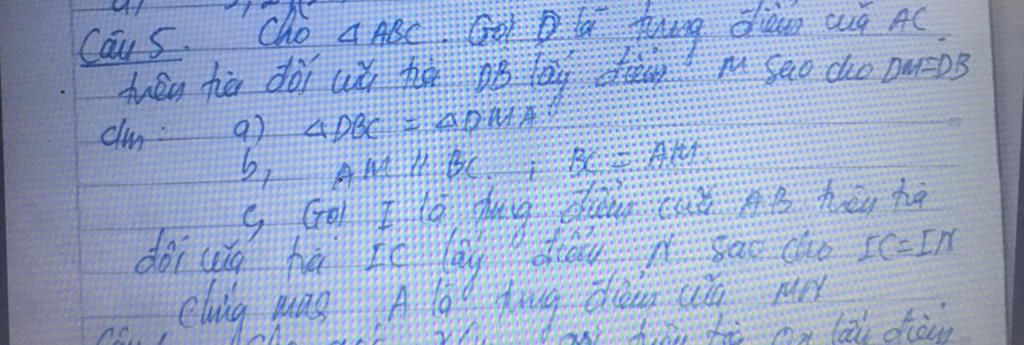 Câu 5. Cho △ABC. Gọi D là trung điểm của AC.
trên tia đối của tia DB lấy điểm M sao cho DM=DB
cm: a) △DBC = △DMA
b, AM // BC ; BC = AM.
c, Gọi I là trung điểm của AB trên tia
đối của tia IC lấy điểm N sao cho IC=IN
chứng A là trung điểm của MN
lấy điểm